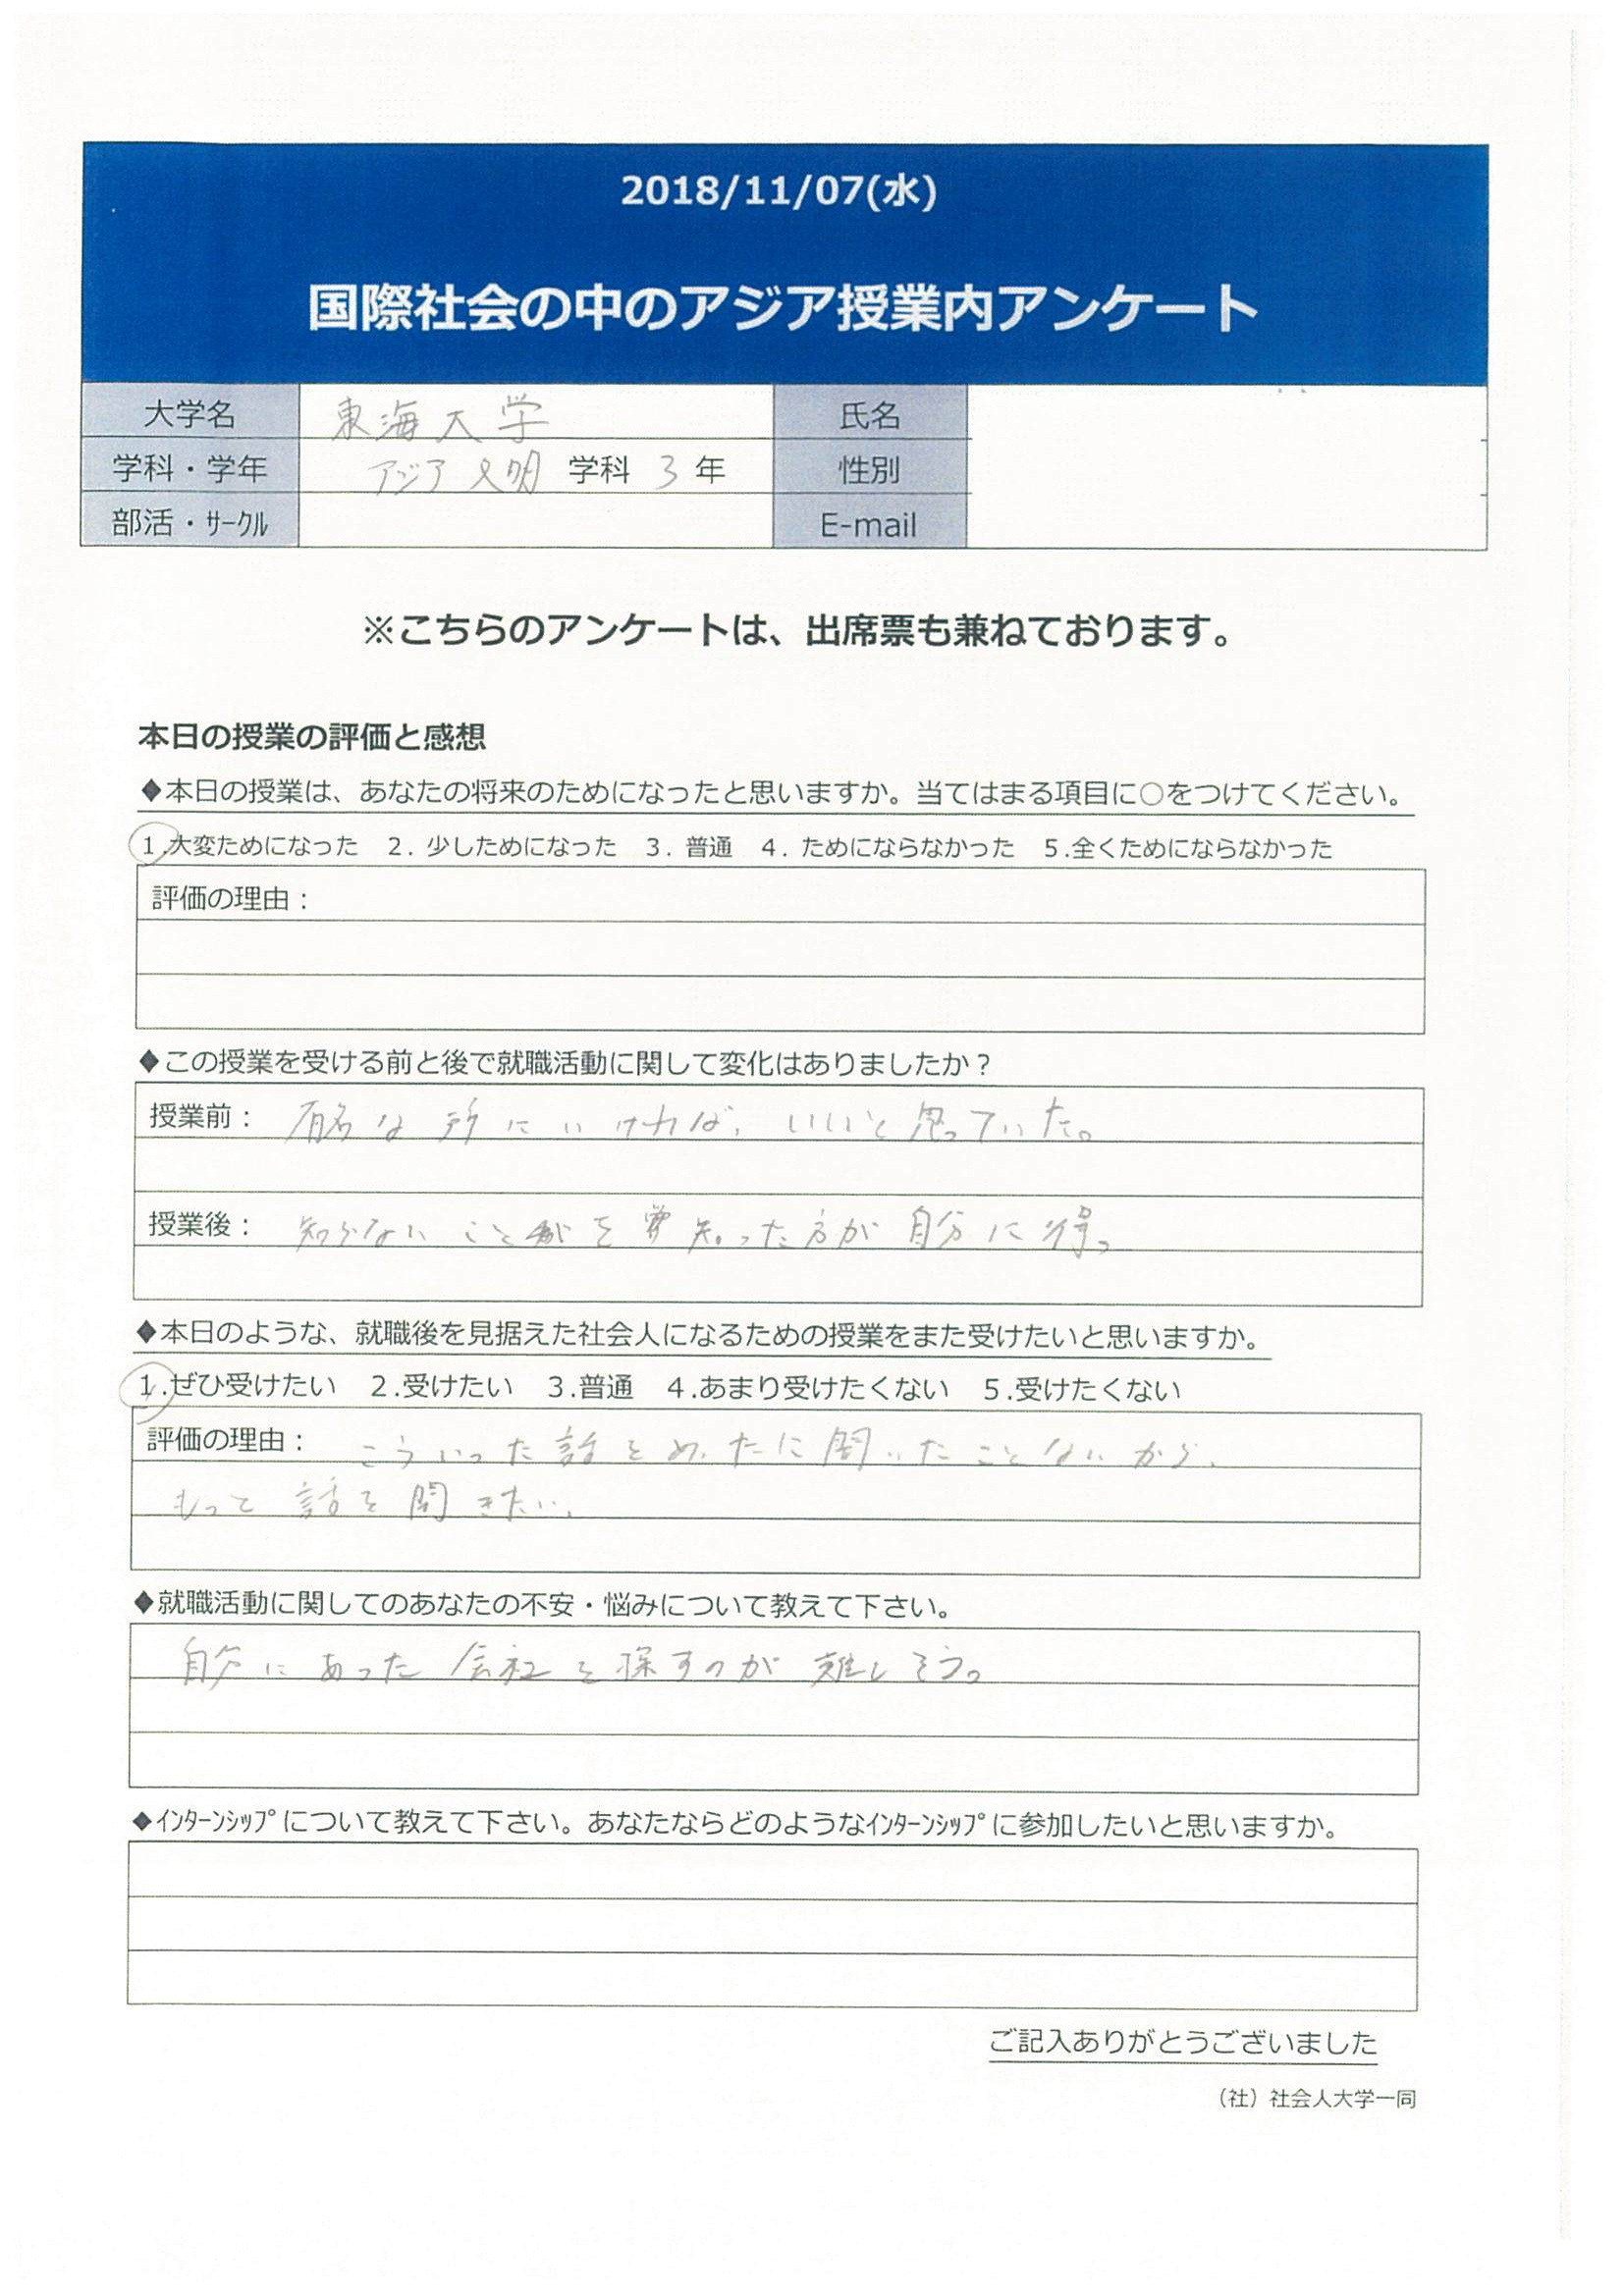 2018/11/07(水)
国際社会の中のアジア授業内アンケート
大学名 東海大学 氏名
学科・学年 アジア文明 学科 3 年 性別
部活・ｻｰｸﾙ E-mail
※こちらのアンケートは、出席票も兼ねております。
本日の授業の評価と感想
◆本日の授業は、あなたの将来のためになったと思いますか。当てはまる項目に○をつけてください。
1.大変ためになった 2. 少しためになった 3. 普通 4. ためにならなかった 5.全くためにならなかった
評価の理由：
◆この授業を受ける前と後で就職活動に関して変化はありましたか？
授業前： 有名な所にいければ、いいと思っていた。
授業後： 知らないことを知った方が自分に得。
◆本日のような、就職後を見据えた社会人になるための授業をまた受けたいと思いますか。
1.ぜひ受けたい 2.受けたい 3.普通 4.あまり受けたくない 5.受けたくない
評価の理由： こういった話をめったに聞いたことないから、
もっと話を聞きたい。
◆就職活動に関してのあなたの不安・悩みについて教えて下さい。
自分にあった会社を探すのが難しそう。
◆ｲﾝﾀｰﾝｼｯﾌﾟについて教えて下さい。あなたならどのようなｲﾝﾀｰﾝｼｯﾌﾟに参加したいと思いますか。
ご記入ありがとうございました
（社）社会人大学一同